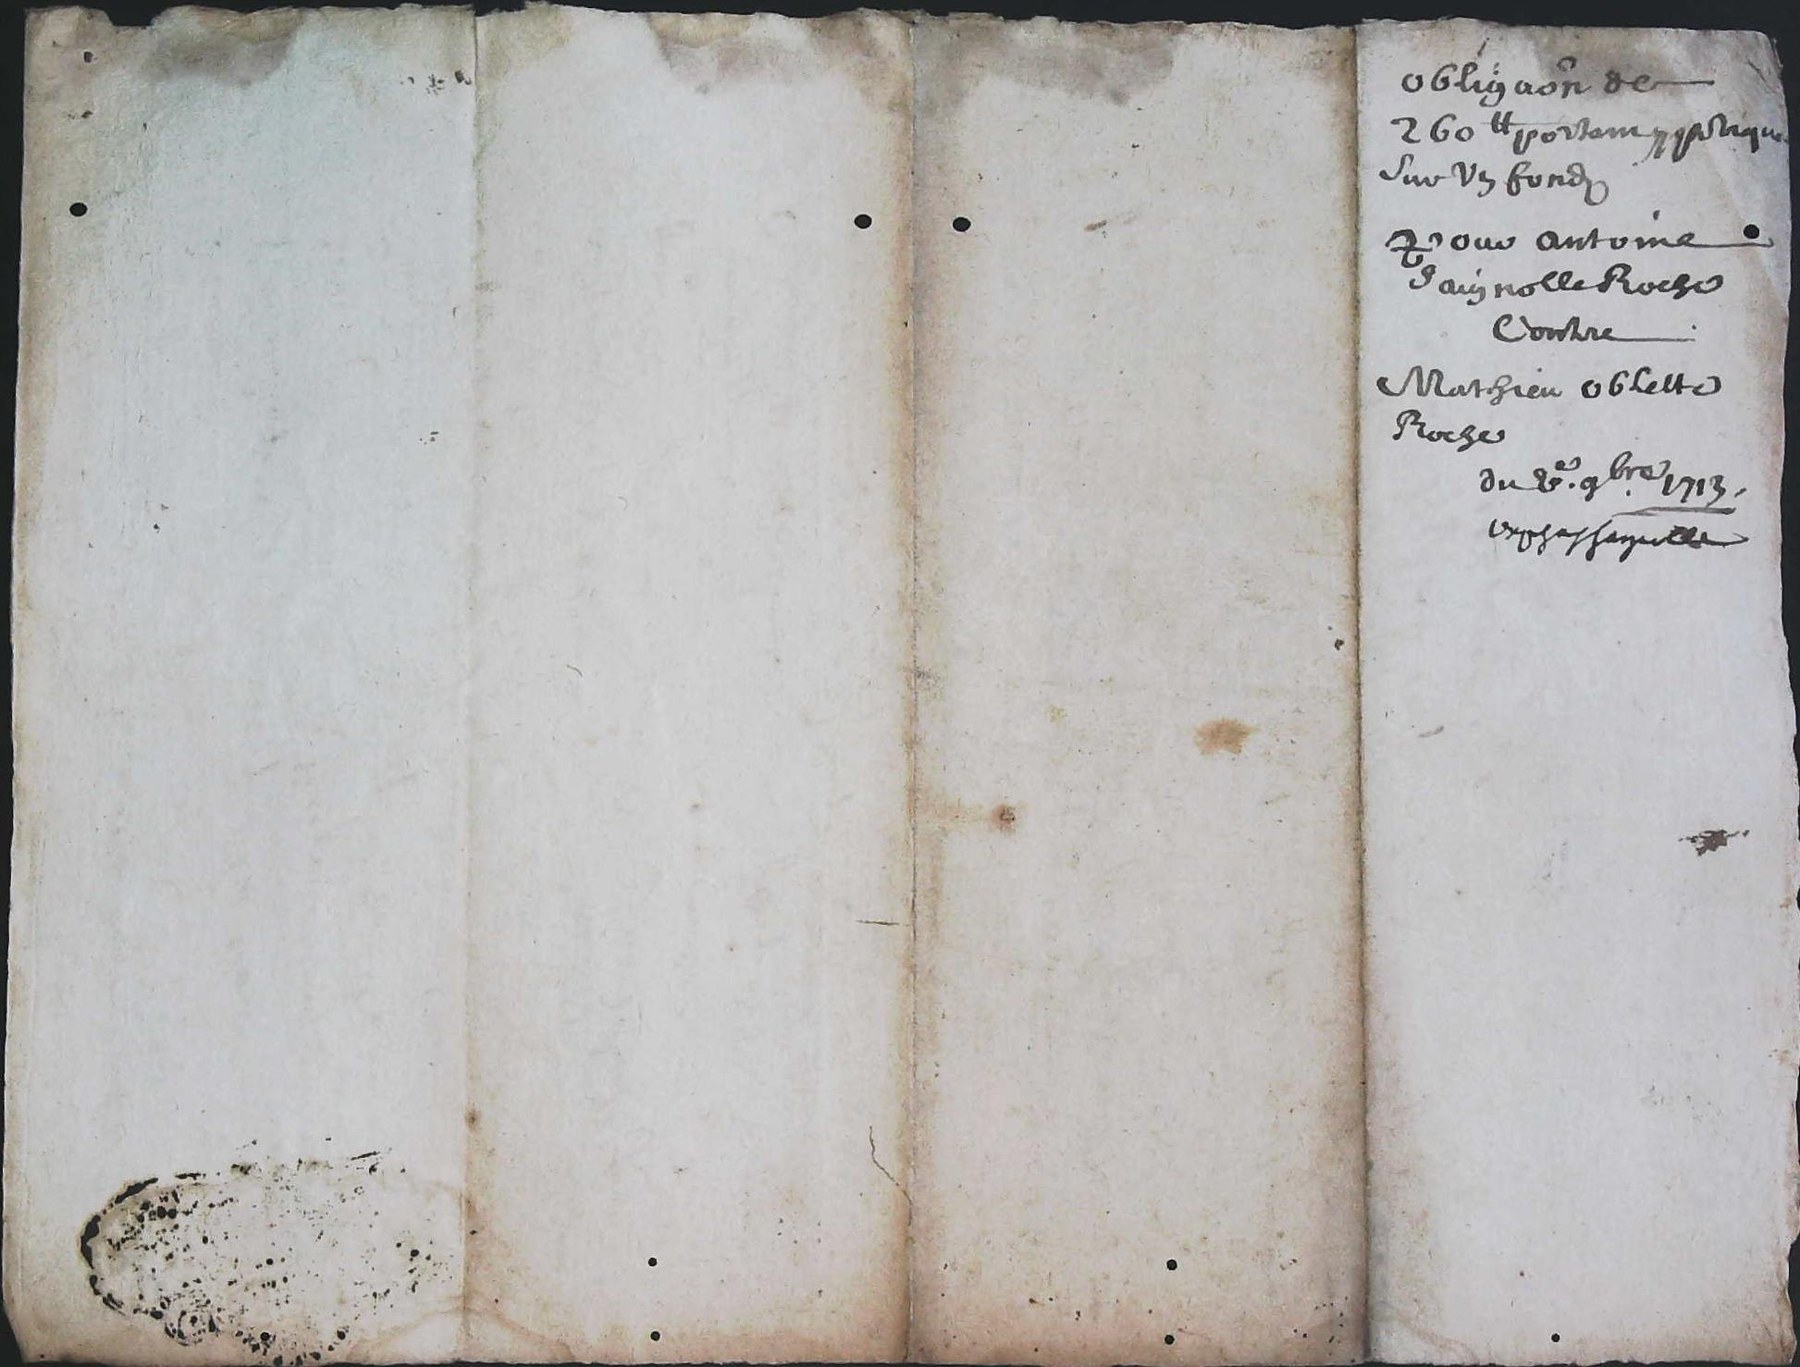 obligaõn de
260 ₶ portant ypotèque
Sur Vn fondz
Pour Antoine
Saignolle Roche
Contre
Mathieu oblette
Roche
du 8e. 9bre 1713.